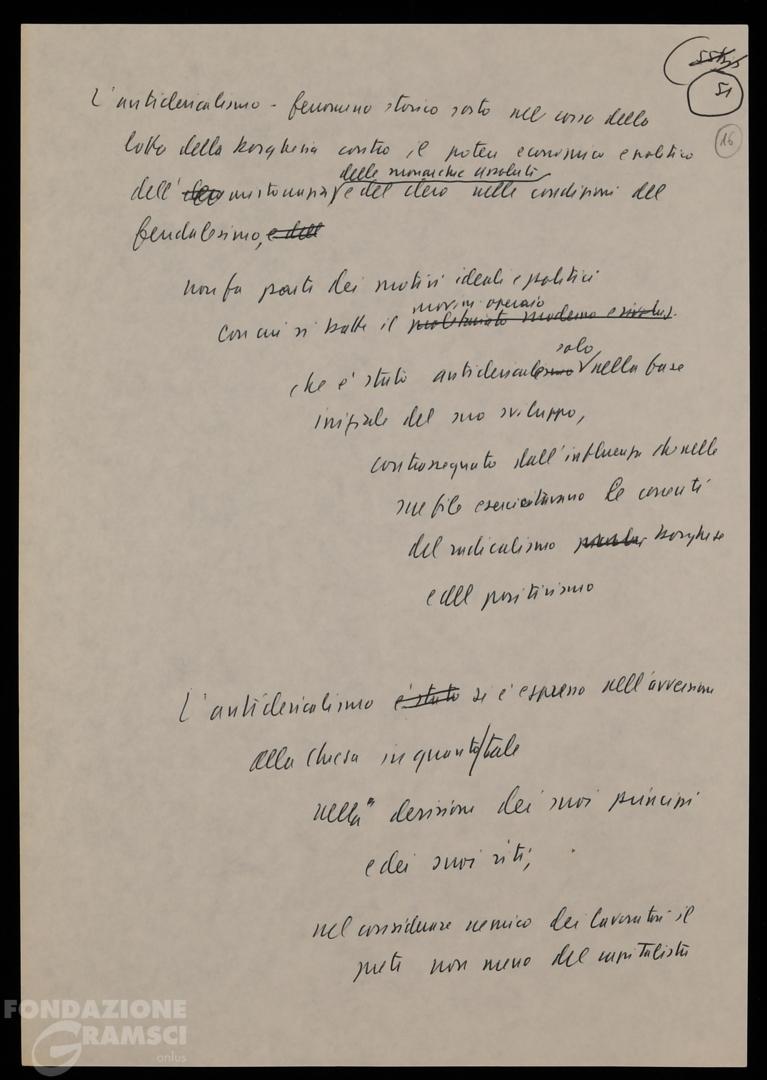 51
16
L'anticlericalismo - fenomeno storico sorto nel corso della
lotta della borghesia contro il potere economico e politico
delle monarchie assolute
dell' aristocrazia e del clero nelle condizioni del
feudalesimo, e dell
non fa parte dei motivi ideali e politici
movim operaio
con cui si batte il proletariato moderno e rivoluz.
solo
che è stato anticlericalesimo nella fase
iniziale del suo sviluppo,
contrassegnato dall'influenza che nelle
sue file esercitavano le correnti
del radicalismo borghese
e del positivismo
L'anticlericalismo è stato si è espresso nell'avversione
alla Chiesa in quanto tale
nella derisione dei suoi principi
e dei suoi riti,
nel considerare nemico dei lavoratori il
prete non meno del capitalista
FONDAZIONE
GRAMSCI
onlus